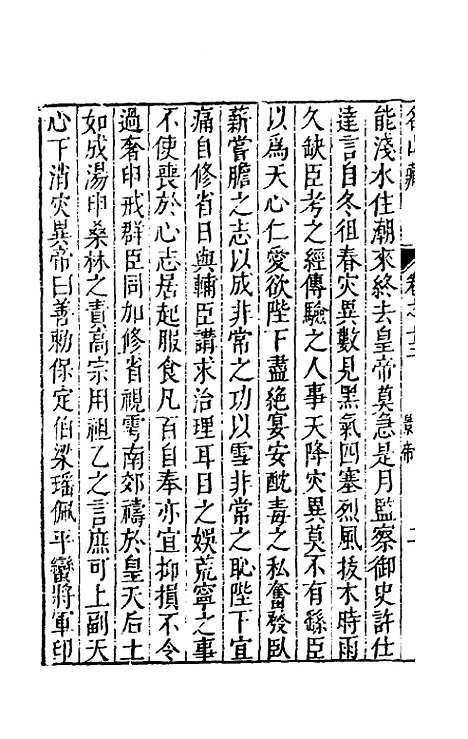 名山藏 卷之十三 景帝 二
能淺水住潮來終去皇帝莫急是月監察御史許仕
達言自冬徂春灾異數見黑氣四塞烈風拔木時雨
久缺臣考之經傳驗之人事天降灾異莫不有繇臣
以爲天心仁愛欲陛下盡絶宴安酖毒之私奮發臥
薪嘗膽之志以成非常之功以雪非常之恥陛下宜
痛自修省日與輔臣講求治理耳目之娛荒寧之事
不使喪於心志居起服食凡百自奉亦宜抑損不令
過奢申戒群臣同加修省視雩南郊禱於皇天后土
如成湯申桑林之責高宗用祖乙之言庶可上副天
心下消灾異帝曰善勑保定伯梁瑶佩平蠻將軍印